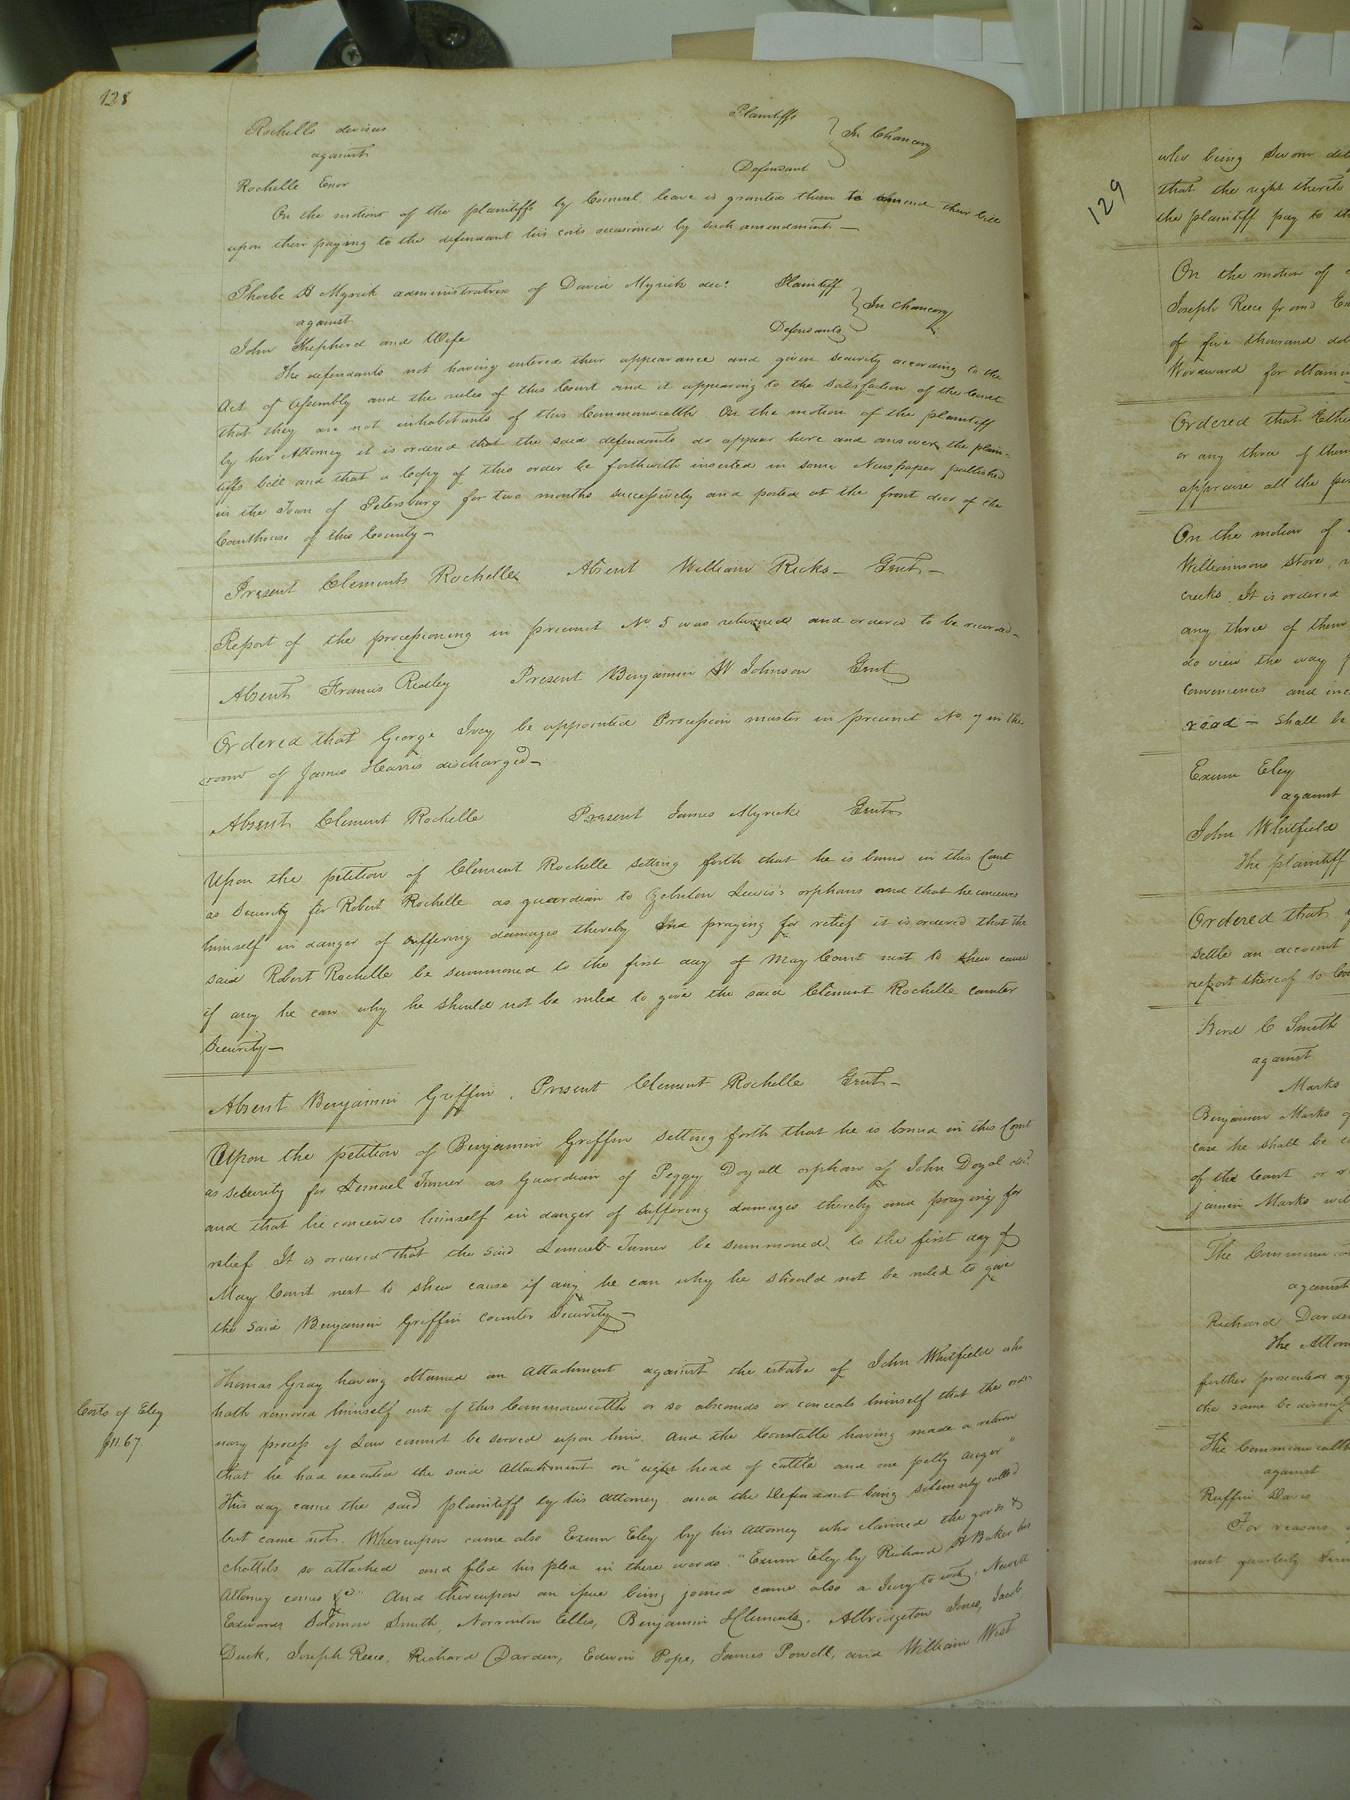 128
Rochells devisees Plaintiffs
against } In Chancery
Rochelle Exor Defendant
On the motion of the plaintiffs by Counsel leave is granted them to amend their bill
upon their paying to the defendant his costs occasioned by such amendment —
Phoebe H Myrick administratrix of David Myrick dec. Plaintiff
against } In Chancery
John Shepherd and Wife Defendants
The defendants not having entered their appearance and given security according to the
Act of Assembly and the rules of this Court and it appearing to the satisfaction of the Court
that they are not inhabitants of this Commonwealth On the motion of the plaintiff
by her Attorney it is ordered that the said defendants do appear here and answer the plain-
tiffs bill and that a Copy of this order be forthwith inserted in some Newspaper published
in the Town of Petersburg for two months successively and posted at the front door of the
Courthouse of this County —
Present Clements Rochelle Absent William Ricks — Gent —
Report of the processioning in precinct No. 5 was returned and ordered to be record—
Absent Francis Ridley Present Benjamin W Johnson Gent
Ordered that George Ivey be appointed Procession master in precinct No. 7 in the
room of James Harris discharged —
Absent Clement Rochelle Present James Myrick Gent
Upon the petition of Clement Rochelle setting forth that he is bound in this Court
as Security for Robert Rochelle as guardian to Zebulon Lewis's orphans and that he conceives
himself in danger of suffering damages thereby and praying for relief it is ordered that the
said Robert Rochelle be summoned to the first day of May Court next to shew cause
if any he can why he should not be ruled to give the said Clement Rochelle counter
Security —
Absent Benjamin Griffin . Present Clement Rochelle Gent —
Upon the petition of Benjamin Griffin setting forth that he is bound in this Court
as security for Lemuel Turner as Guardian of Peggy Doyall orphan of John Doyal dec.
and that he conceives himself in danger of suffering damages thereby and praying for
relief It is ordered that the said Lemuel Turner be summoned to the first day of
May Court next to shew cause if any he can why he should not be ruled to give
the said Benjamin Griffin counter Security —
Thomas Gray having obtained an Attachment against the estate of John Whitfield who
hath removed himself out of this Commonwealth or so absconds or conceals himself that the ordi-
Costs of Eley
$11.67.
nary process of Law cannot be served upon him. And the Constable having made a return
that he had executed the said Attachment on "eight head of cattle and one pally auger"
This day came the said plaintiff by his Attorney and the Defendant being solemnly called
but came not. Whereupon came also Exum Eley by his Attorney who claimed the goods &
chattels so attached and filed his plea in these words. "Exum Eley by Richard H Baker his
Attorney comes &c" And thereupon an issue being joined came also a Jury to wit, Newitt
Edwards Solomon Smith, Norrinton Ellis, Benjamin Clements, Albridgeton Jones, Jacob
Duck, Joseph Reese, Richard Darden, Edwin Pope, James Powell, and William West
129
who being Sworn
that the right thereto
the plaintiff pay to
On the motion of
Joseph Reese jr and
of five thousand
Woodward for obtaining
Ordered that
or any three of them
appraise all the
On the motion of
Williamsons Store
creeks. It is ordered
any three of them
do view the way
conveniences and
road — shall be
Exum Eley
against
John Whitfield
The plaintiff
Ordered that
settle an account
report thereof to
C Smith
against
Marks
Benjamin Marks
case he shall be
of the Court or
jamin Marks
The Common
against
Richard
The
further prosecuted
the same be
The Commonwealth
against
Ruffin Davis
For reasons
next quarterly